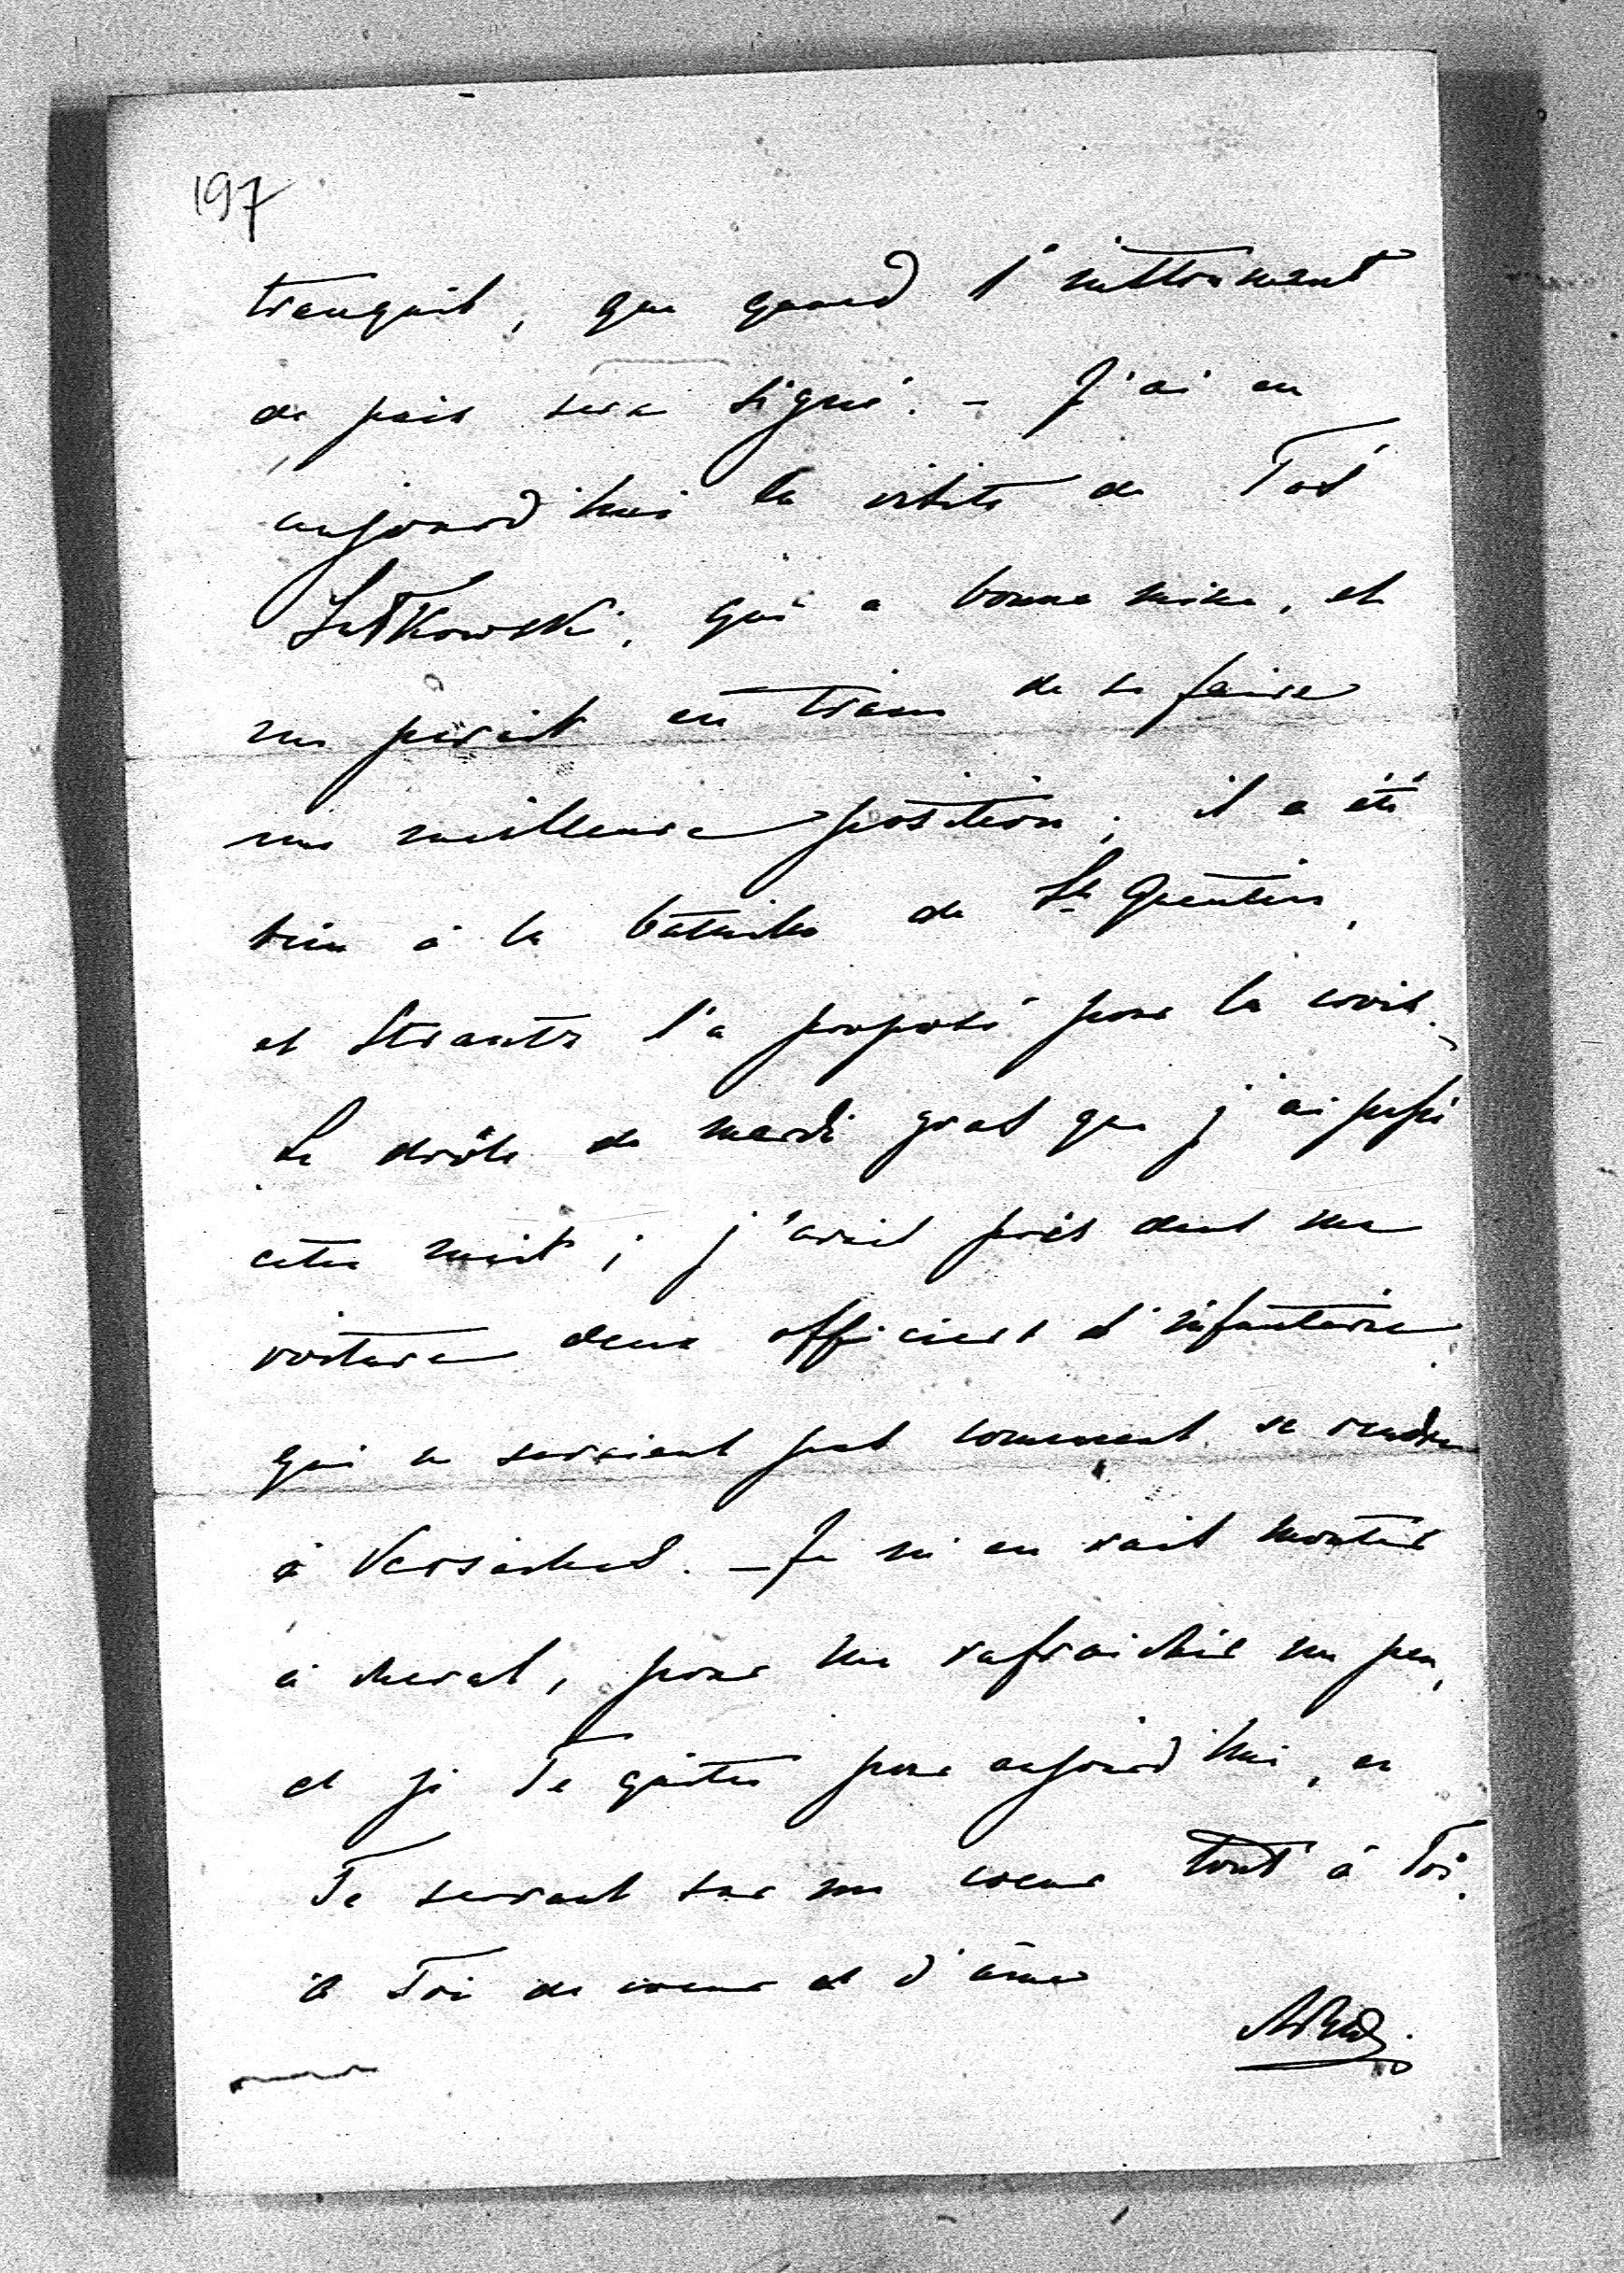 197
tranquil, que quand l'instrument
de paix sera signé. – J'ai eu
aujourd'hui la visite de
Sutkowski, qui a bonne mine, et
me parait en train de se faire
une meilleure position; il a été
bien à la bataille de St Quentin,
et Strantz l'a proposé pour la croix.
de mardi gras que j'ai passé
cette nuit; j'avais pris dans ma
voiture deux officiers d'infanterie
qui ne savaient pas comment se rendre
à Versailles. – Je m'en vais monter
à cheval, pour me rafraichir un peu,
et je Te quitte pour aujourd'hui, en
Te serrant sur mon coeur tout à Toi.
à Toi de coeur et d'âme